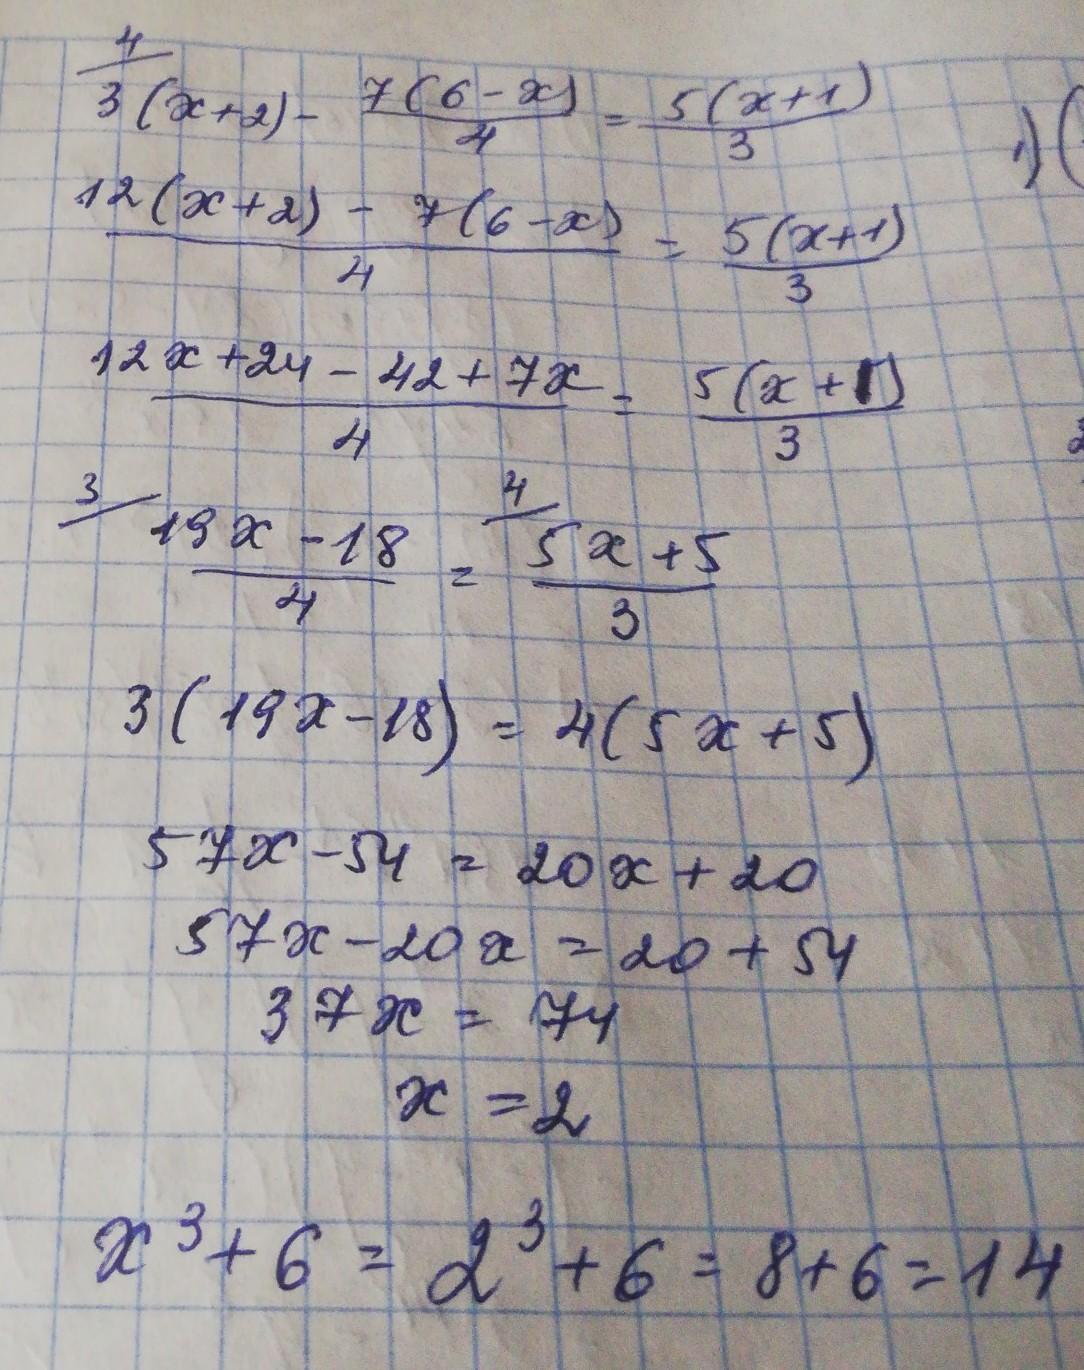 4
3(x+2) - 7(6-x)/4 = 5(x+1)/3
12(x+2) - 7(6-x)/4 = 5(x+1)/3
12x+24-42+7x/4 = 5(x+1)/3
3/ 19x-18/4 = 4/ 5x+5/3
3(19x-18) = 4(5x+5)
57x-54 = 20x+20
57x-20x = 20+54
37x = 74
x = 2
x³+6 = 2³+6 = 8+6 = 14
1) (